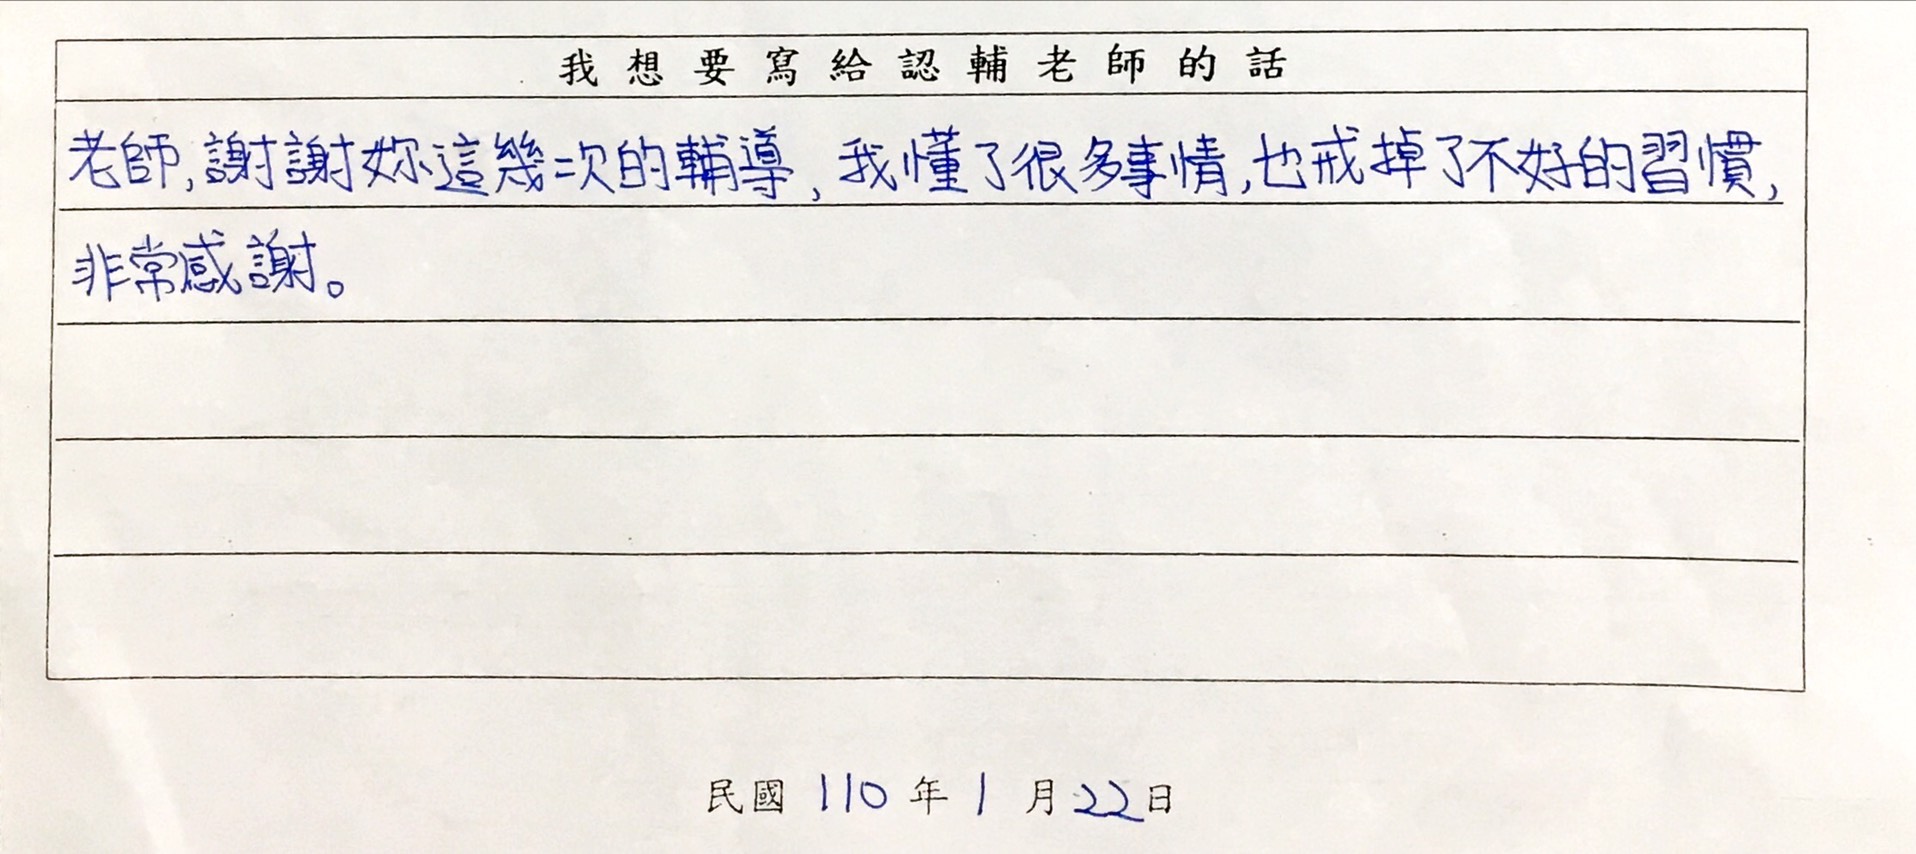 我想要寫給認輔老師的話
老師,謝謝妳這幾次的輔導,我懂了很多事情,也戒掉了不好的習慣,
非常感謝。
民國 110 年 1 月 22 日